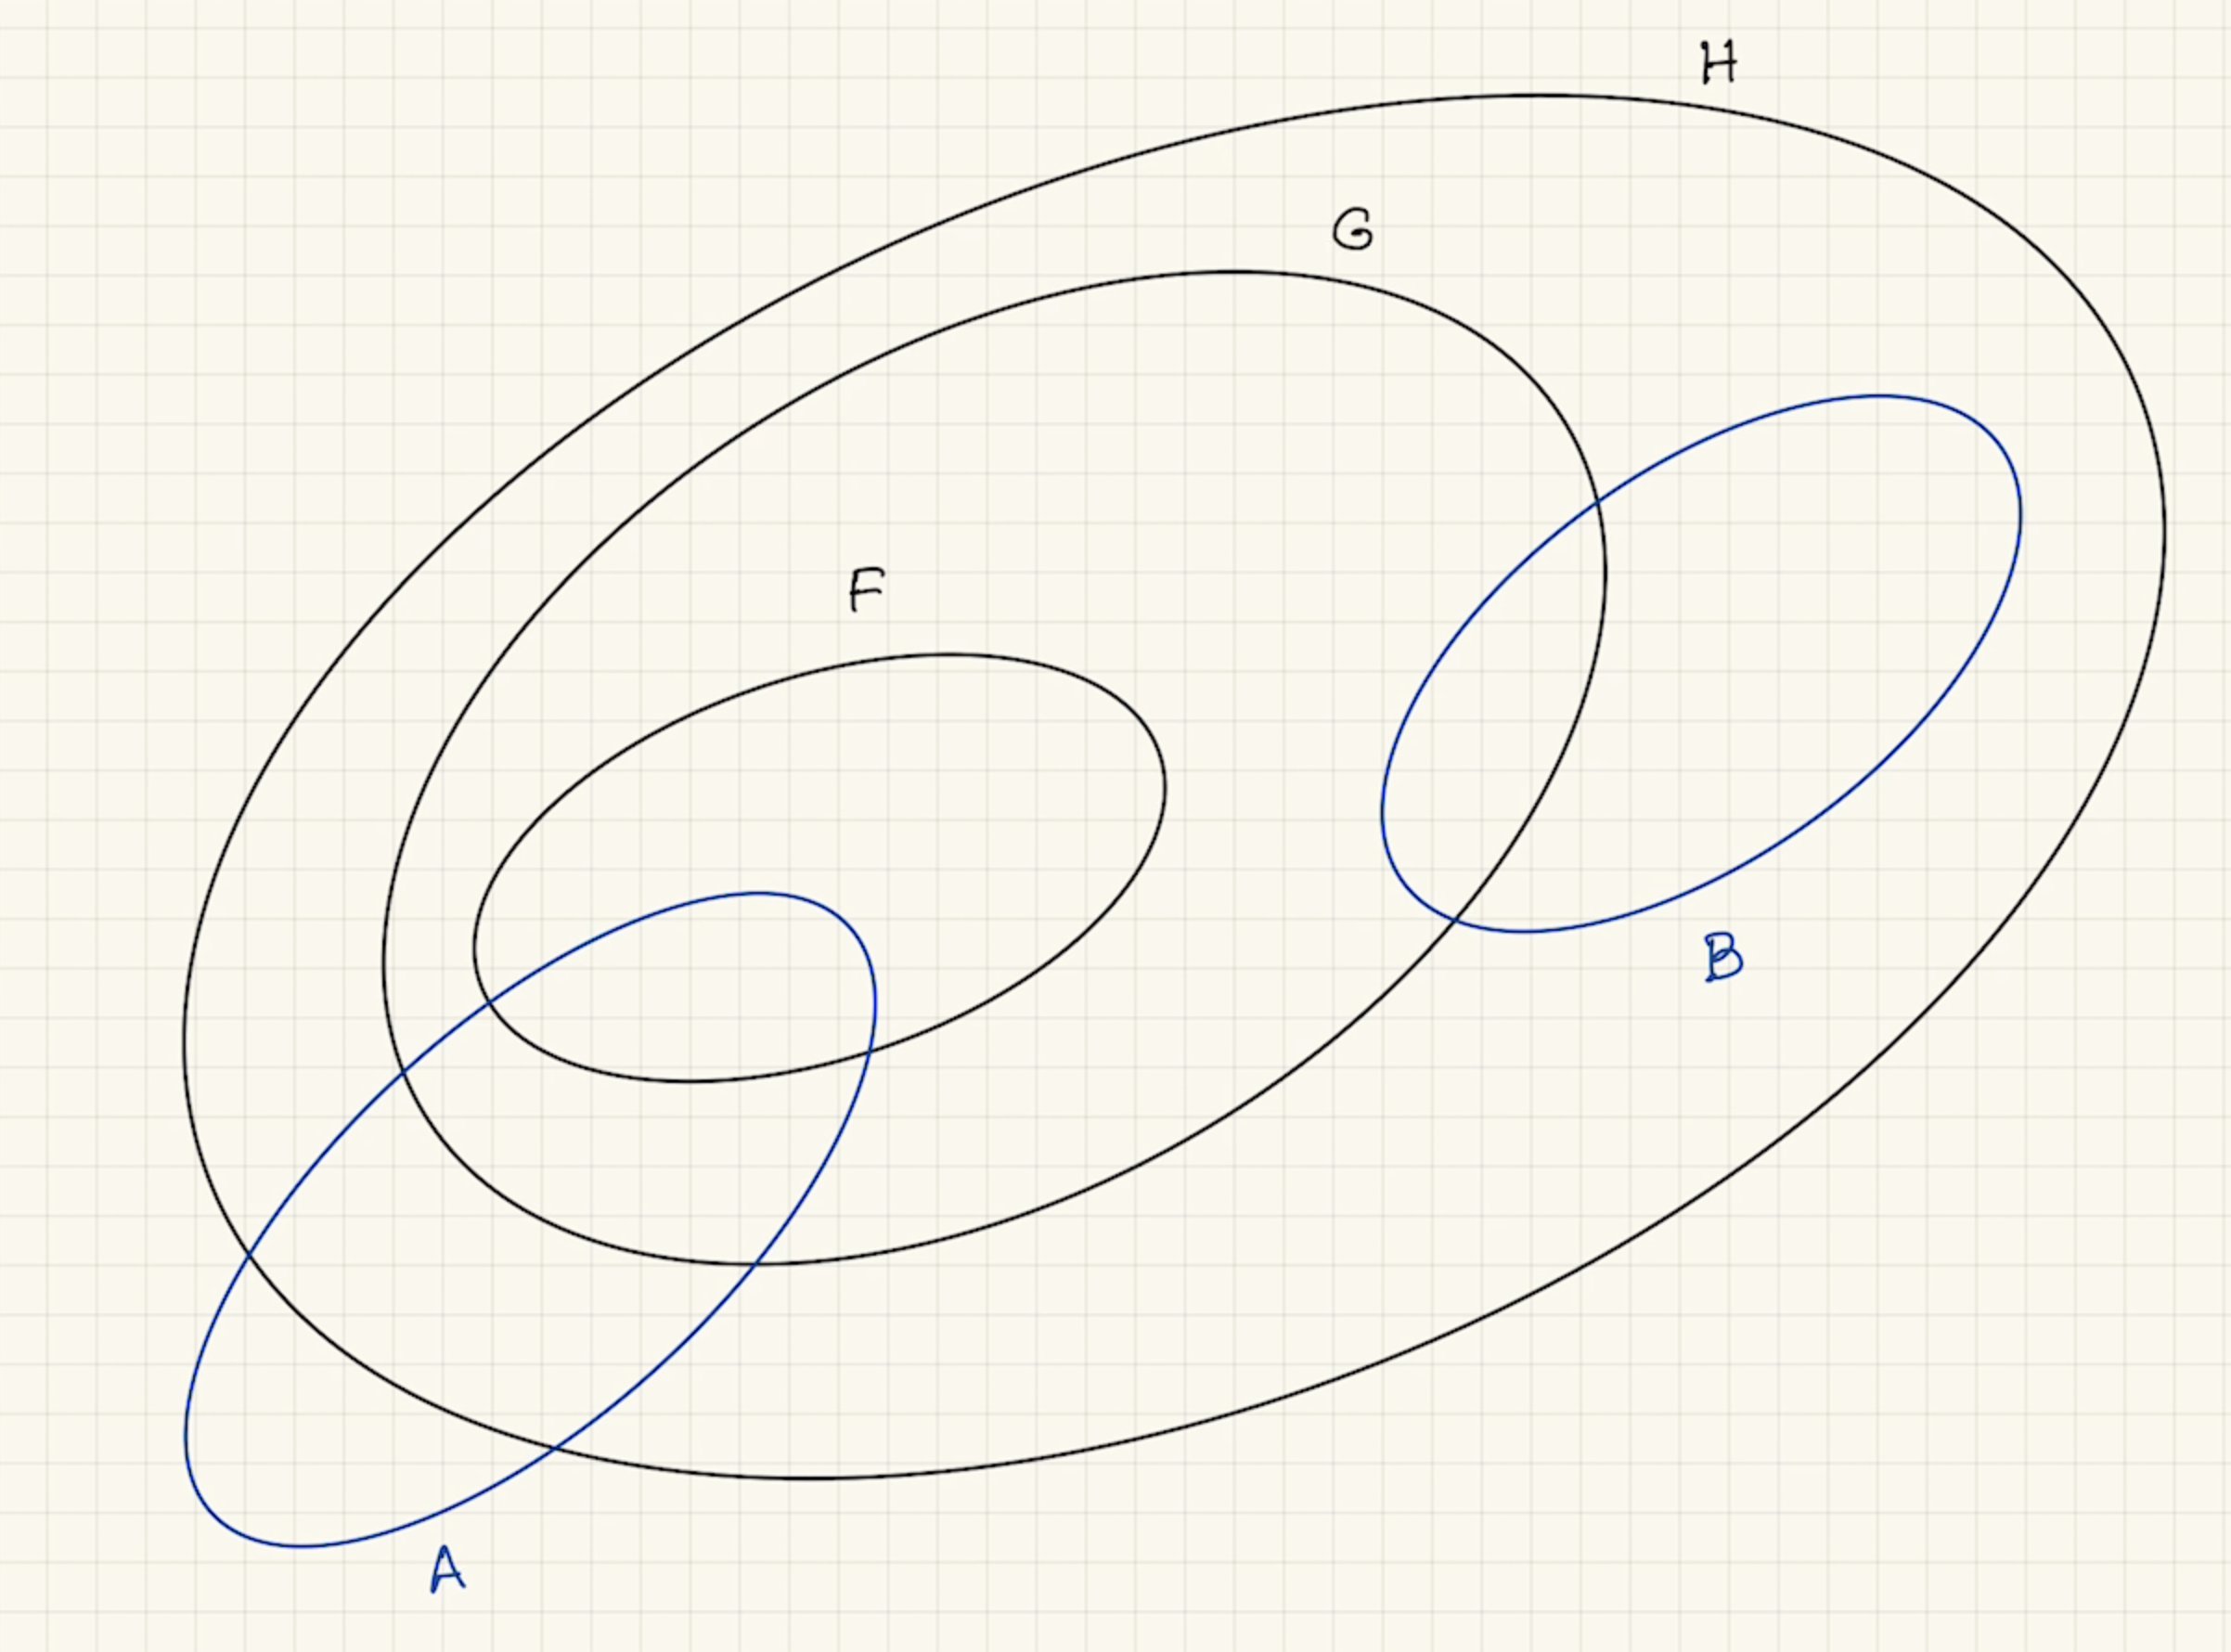 H
G
F
B
A